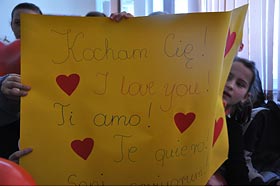 Kocham Cię!
I love you!
Ti amo!
Te quiero!